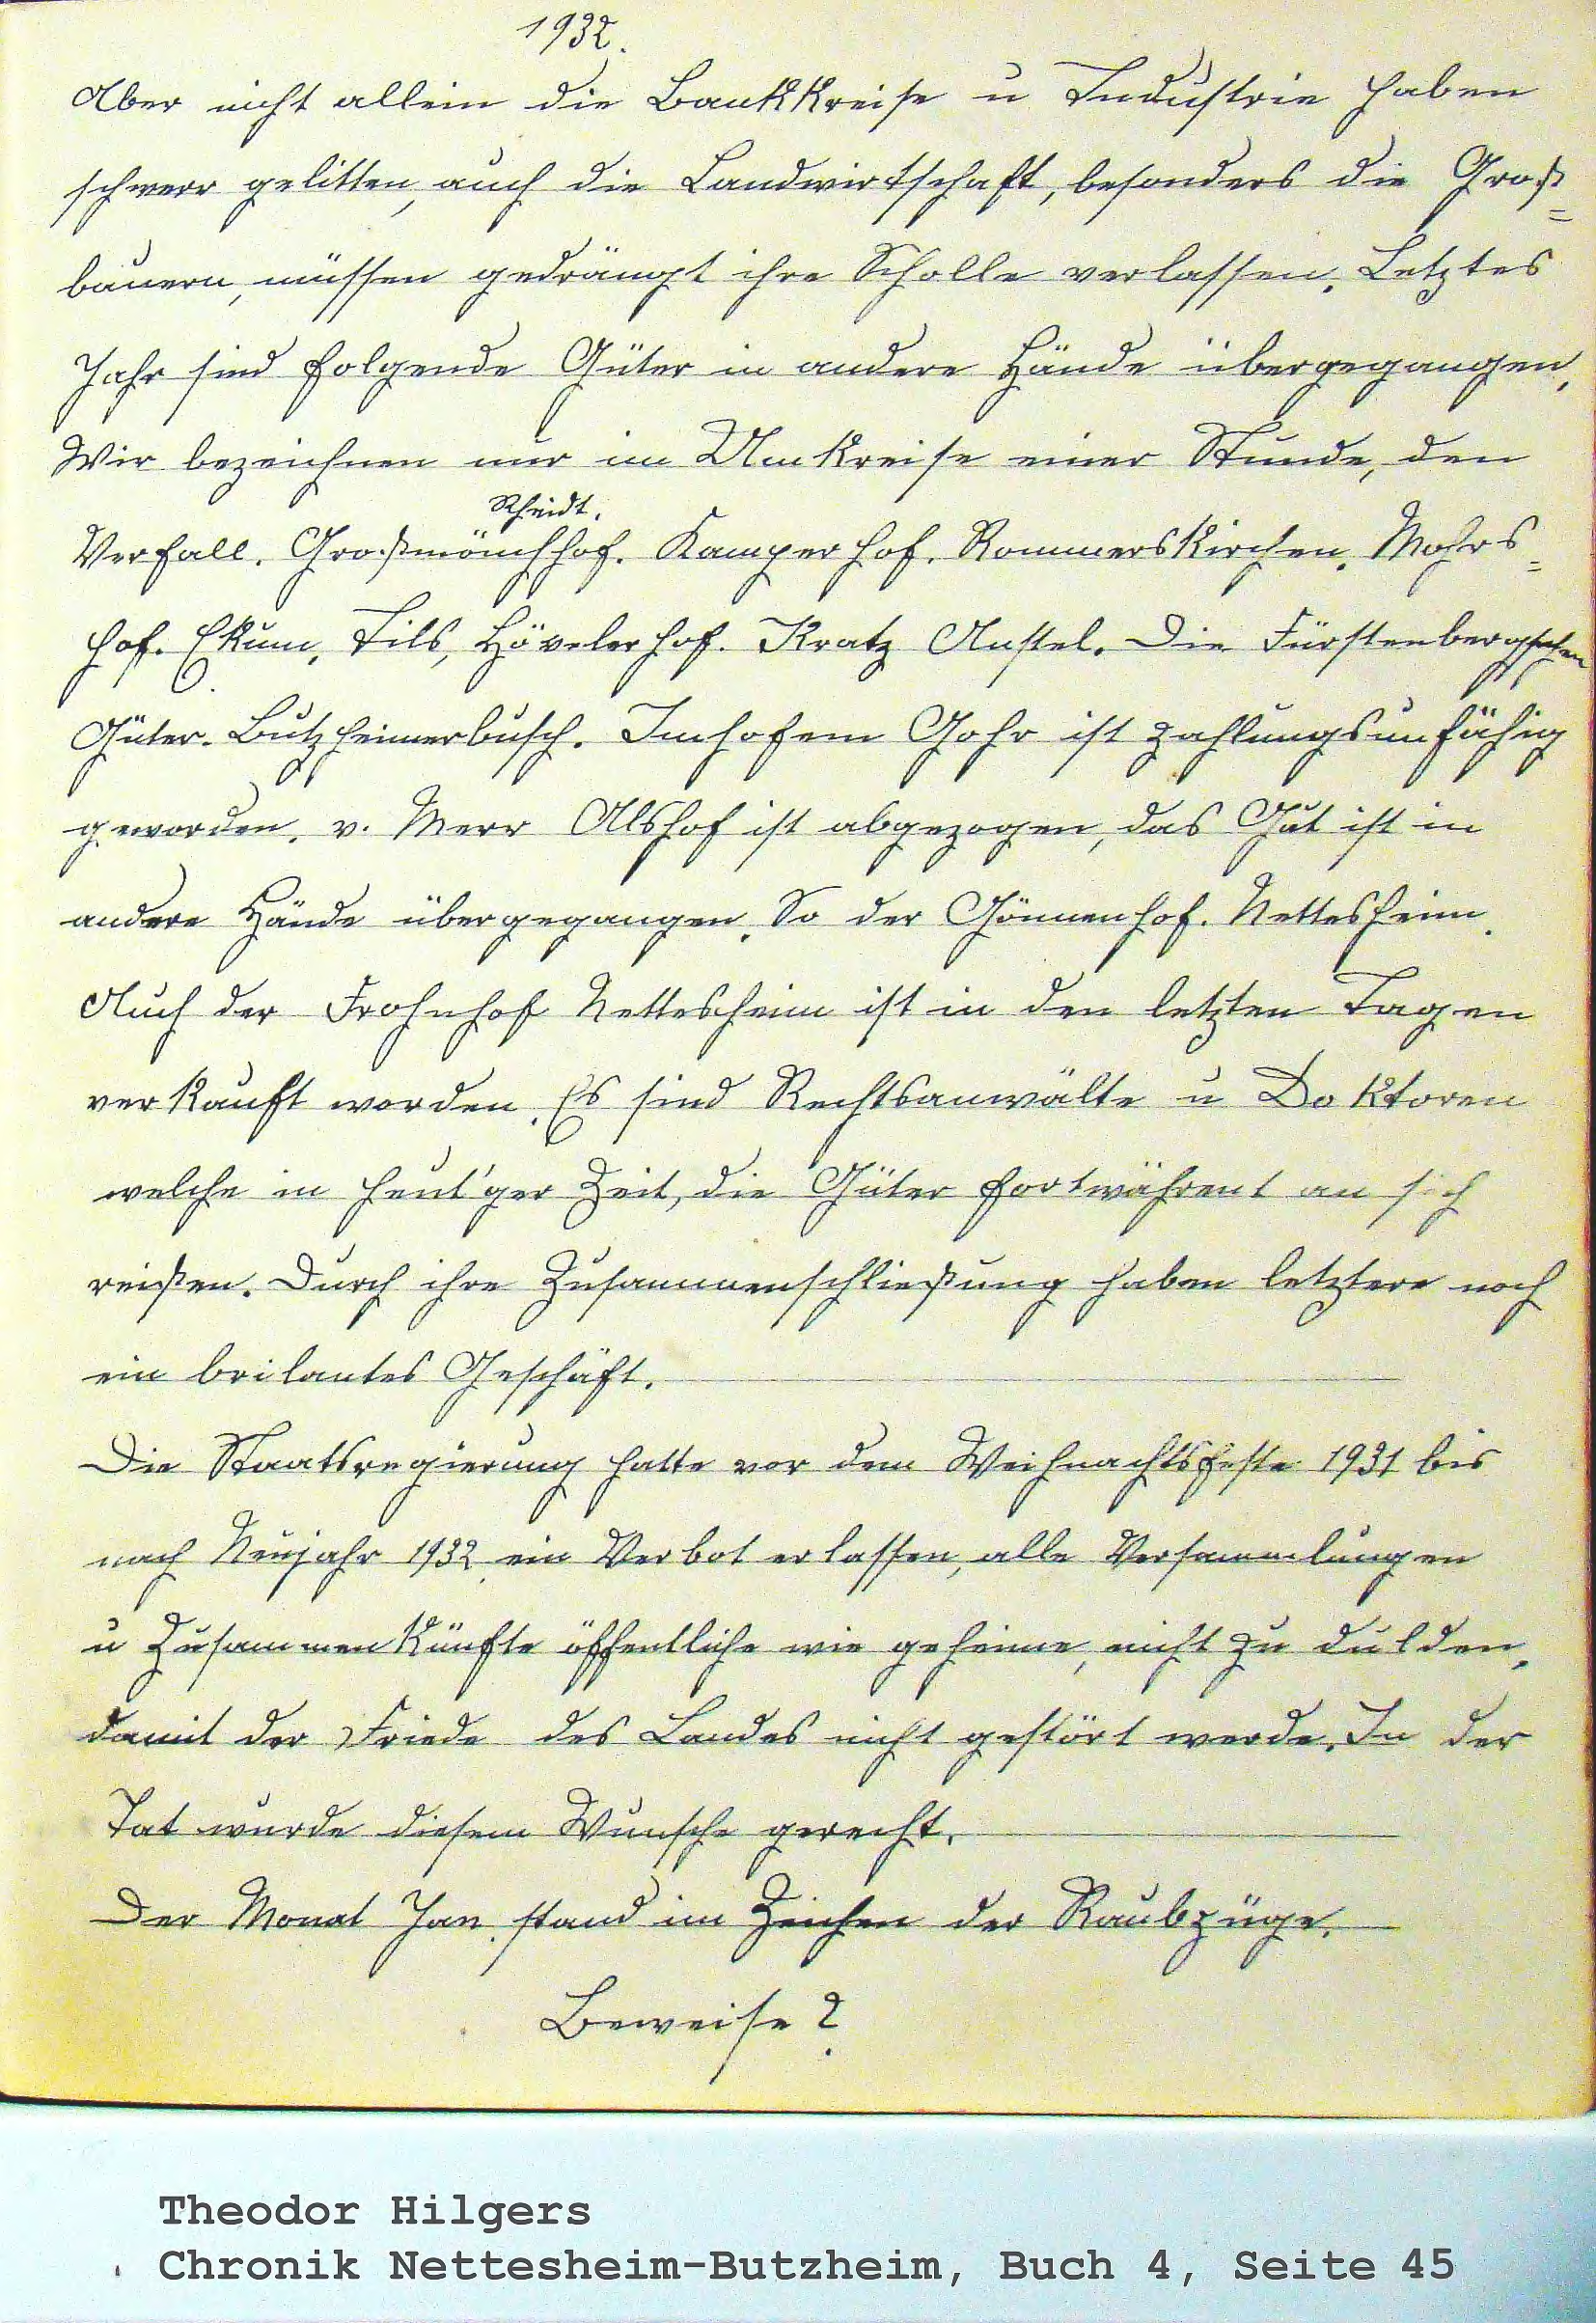 1932.
Aber nicht allein die Bankkreise u Industrie haben
schwer gelitten, auch die Landwirtschaft, besonders die Groß=
bauern, müssen gedrängt ihre Scholle verlassen. Letztes
Jahr sind folgende Güter in andere Hände übergegangen,
Wir bezeichnen nur im Umkreise einer Stunde, den
Rheidt.
Verfall. Großmönchhof. Kamper hof. Rommerskirchen. Mohrs=
hof. Ekum, Tils, Hövelerhof. Kratz Anstel. Die Fürstenbergschen
Güter. Butzheimerbusch. Imhofem Gohr ist zahlungsunfähig
geworden. v. Merr Alshof ist abgezogen, das Gut ist in
andere Hände übergegangen. So der Gönnenhof. Nettesheim.
Auch der Frohnhof Nettesheim ist in den letzten Tagen
verkauft worden. Es sind Rechtsanwälte u Doktoren
welche in heut'ger Zeit, die Güter fortwährent an sich
reißen. Durch ihre Zusammenschließung haben letztere noch
ein brilantes Geschäft.
Die Staatsregierung hatte vor dem Weihnachtsfeste 1931 bis
nach Neujahr 1932 ein Verbot erlassen, alle Versammlungen
u Zusammenkünfte öffentliche wie geheime, nicht zu dulden,
damit der Friede des Landes nicht gestört werde. In der
Tat wurde diesem Wunsche gerecht.
Der Monat Jan. stand im Zeichen der Raubzüge.
Beweise?
Theodor Hilgers
Chronik Nettesheim-Butzheim, Buch 4, Seite 45